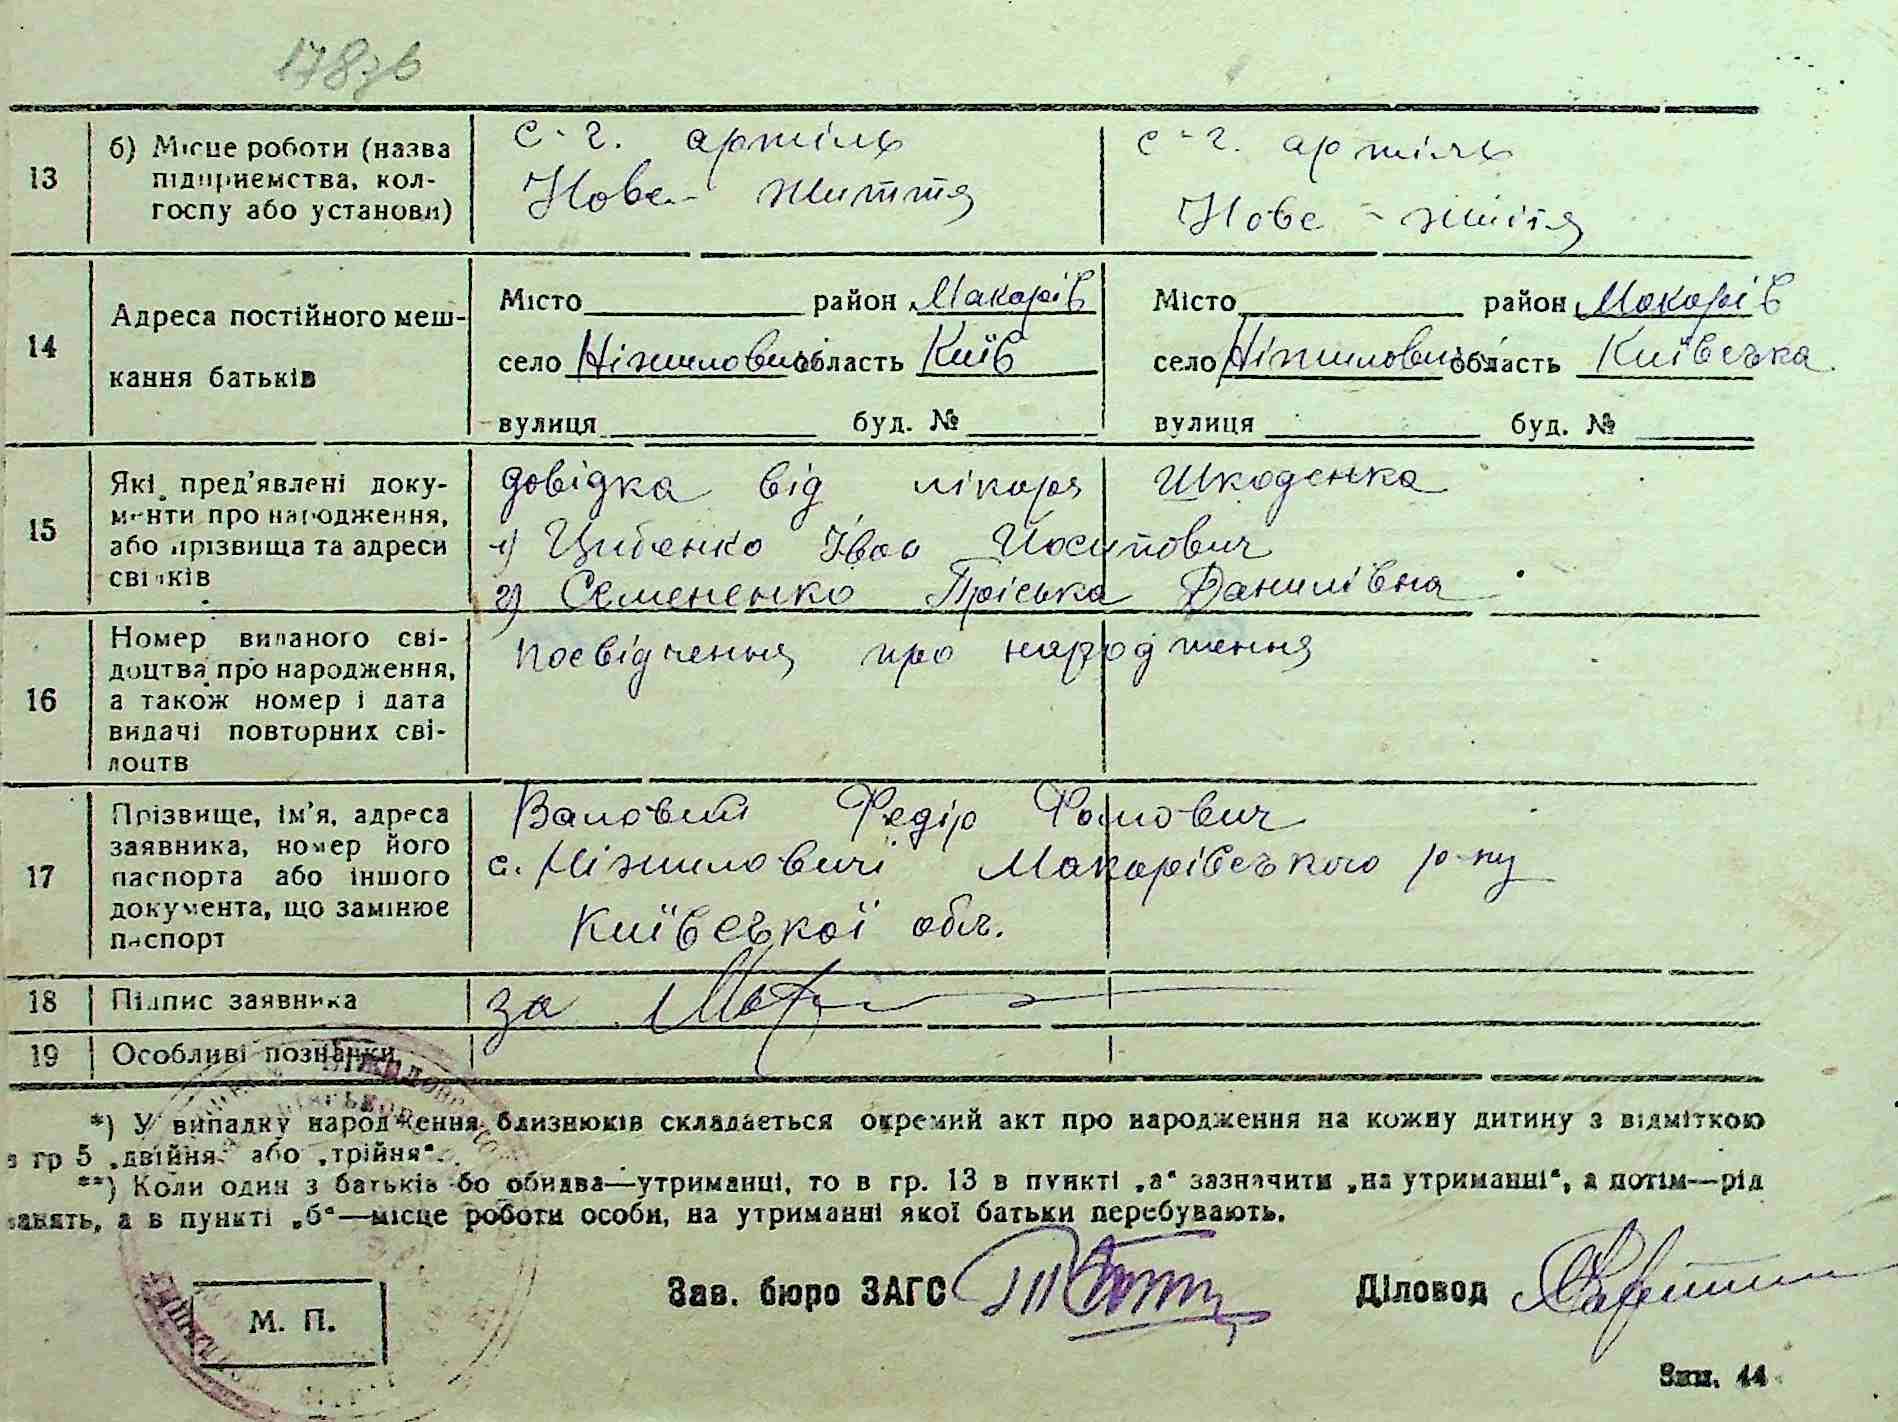 178зв
13 б) Місце роботи (назва підприємства, колгоспу або установи)
с-г. артіль
Нове- життя
с-г. артіль
Нове - життя
14 Адреса постійного мешкання батьків
Місто район Макарів
село Ніжиловичі область Київ
вулиця буд. №
Місто район Макарів
село Ніжиловичі область Київська
вулиця буд. №
15 Які пред'явлені документи про народження, або прізвища та адреси свідків
довідка від лікаря Шкоденка
1) Цибенко Іван Йосипович
2) Семененко Пріська Данилівна
16 Номер виданого свідоцтва про народження, а також номер і дата видачі повторних свідоцтв
посвідчення про народження
17 Прізвище, ім'я, адреса заявника, номер його паспорта або іншого документа, що замінює паспорт
Валовий Федір Фомович
с. Ніжиловичі Макарівського р-ну
Київської обл.
18 Підпис заявника
за
19 Особливі познаки
*) У випадку народження близнюків складається окремий акт про народження на кожну дитину з відміткою
в гр 5 „двійня" або „трійня".
**) Коли один з батьків бо обидва—утриманці, то в гр. 13 в пункті „а" зазначити „на утриманні", а потім—рід
занять, а в пункті „б"—місце роботи особи, на утриманні якої батьки перебувають.
Зав. бюро ЗАГС
Діловод
М. П.
Зам. 44